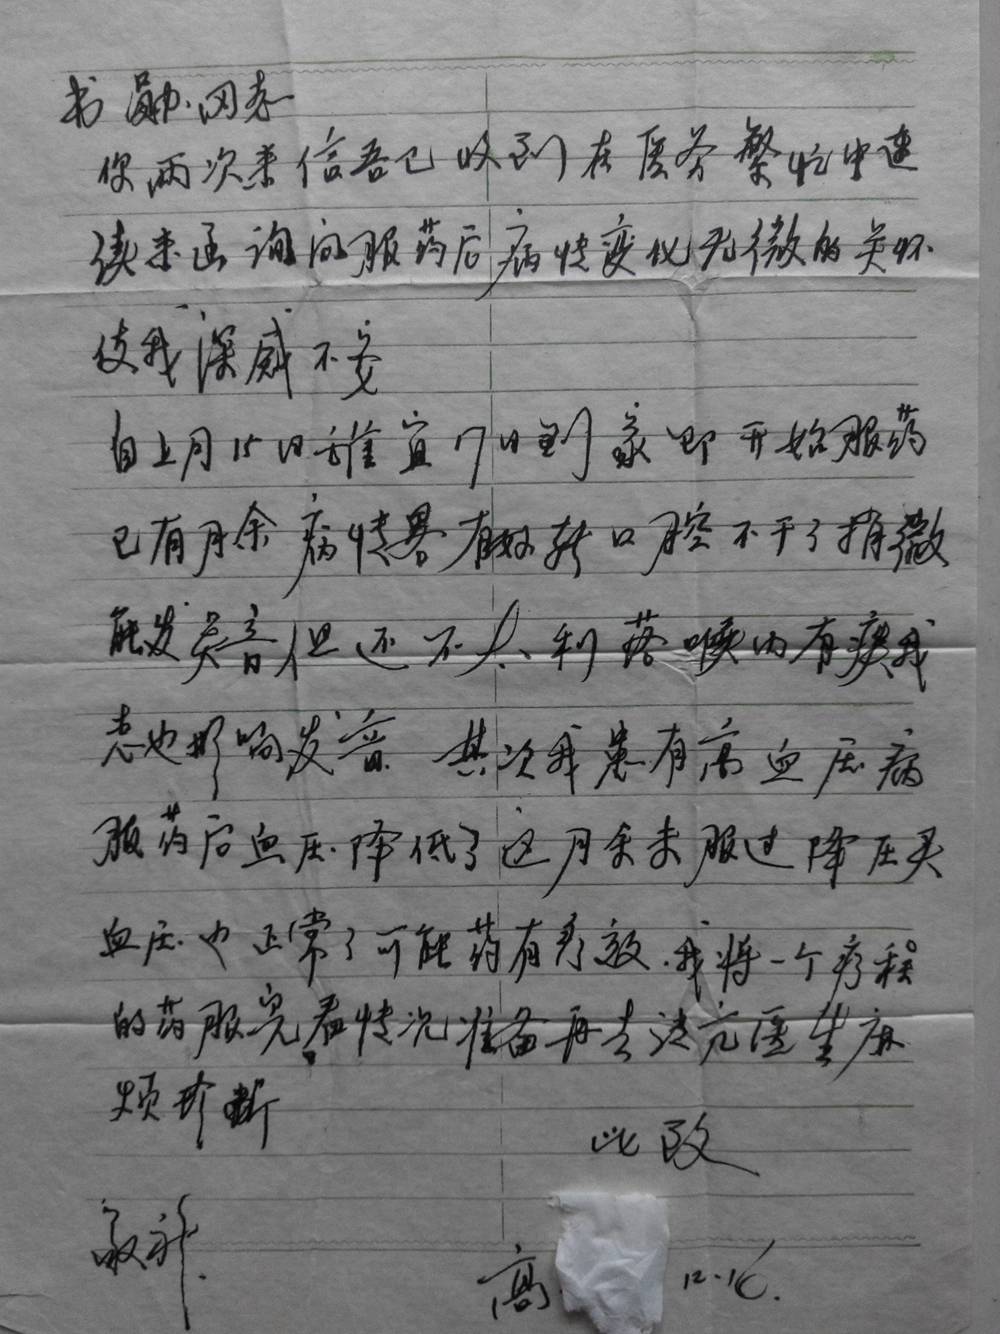 书勋同志
你两次来信吾已收到在医务繁忙中连
续来函询问服药后病情变化无微的关怀
使我深感不安
自上月15日离宜17日到家即开始服药
已有月余病情略有好转口腔不干了稍微
能发点音但还不太利落喉内有痰我
想也影响发音 其次我患有高血压病
服药后血压降低了这月余未服过降压灵
血压也正常了可能药有疗效.我将一个疗程
的药服完看情况准备再去请亢医生麻
烦珍断
此致
敬礼.
高 12.16.